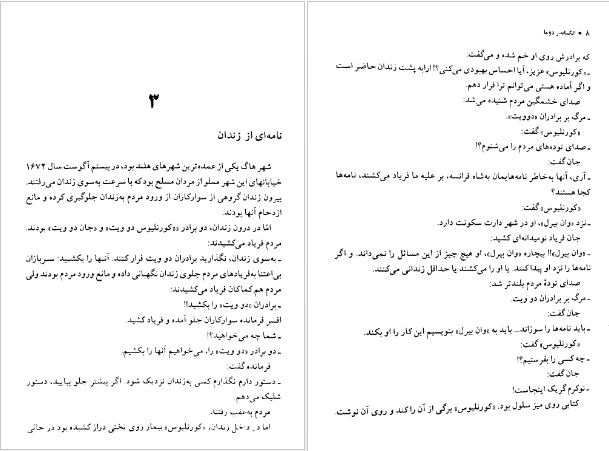 ۳
نامه‌ای از زندان
شهر هاگ یکی از عمده‌ترین شهرهای هلند بود، در بیستم آگوست سال ۱۶۷۲
خیابانهای این شهر مملو از مردان مسلح بود که با سرعت به‌سوی زندان می‌رفتند.
بیرون زندان گروهی از سوارکاران از ورود مردم به‌زندان جلوگیری کرده و مانع
ازدحام آنها بودند.
امّا در درون زندان، دو برادر «کورنلیوس دو ویت» و «جان دو ویت» بودند.
مردم فریاد می‌کشیدند:
ـ به‌سوی زندان، نگذارید برادران دو ویت فرار کنند. آنها را بکشید: سربازان
بی‌اعتنا به‌فریادهای مردم جلوی زندان نگهبانی داده و مانع ورود مردم بودند ولی
مردم هم‌کماکان فریاد می‌کشیدند:
ـ برادران «دو ویت» را بکشید!!
افسر فرمانده سوارکاران جلو آمده و فریاد کشید.
ـ شما چه می‌خواهید؟!
ـ دو برادر «دو ویت» را، می‌خواهیم آنها را بکشیم.
فرمانده گفت:
ـ دستور دارم نگذارم کسی به‌زندان نزدیک شود. اگر بیشتر جلو بیایید، دستور
شلیک می‌دهم.
مردم به‌عقب رفتند.
اما در داخل زندان، «کورنلیوس» بیمار روی تختی دراز کشیده بود در حالی
۸ ■ الکساندر دوما
که برادرش روی او خم شده و می‌گفت:
ـ «کورنلیوس» عزیز، آیا احساس بهبودی می‌کنی؟! ارابه پشت زندان حاضر است
و اگر آماده هستی می‌توانم ترا فرار دهم.
صدای خشمگین مردم شنیده می‌شد:
ـ مرگ بر برادران «دوویت».
«کورنلیوس» گفت:
ـ صدای توده‌های مردم را می‌شنوم؟!
جان گفت:
ـ آری، آنها به‌خاطر نامه‌هایمان به‌شاه فرانسه، بر علیه ما فریاد می‌کشند، نامه‌ها
کجا هستند؟
«کورنلیوس» گفت:
ـ نزد «وان بیرل»، او در شهر دارت سکونت دارد.
جان فریاد نومیدانه‌ای کشید:
ـ «وان بیرل»!! بیچاره «وان بیرل»، او هیچ چیز از این مسائل را نمی‌داند. و اگر
نامه‌ها را نزد او پیدا کنند. یا او را می‌کشند یا حداقل زندانی می‌کنند.
صدای تودهٔ مردم بلندتر شد:
ـ مرگ بر برادران دو ویت.
جان گفت:
ـ باید نامه‌ها را سوزاند... باید به «وان بیرل» بنویسیم این کار را او بکند.
«کورنلیوس» گفت:
ـ چه کسی را بفرستیم؟!
جان گفت:
ـ نوکرم گریک اینجاست!
کتابی روی میز سلول بود. «کورنلیوس» برگی از آن را کند و روی آن نوشت.